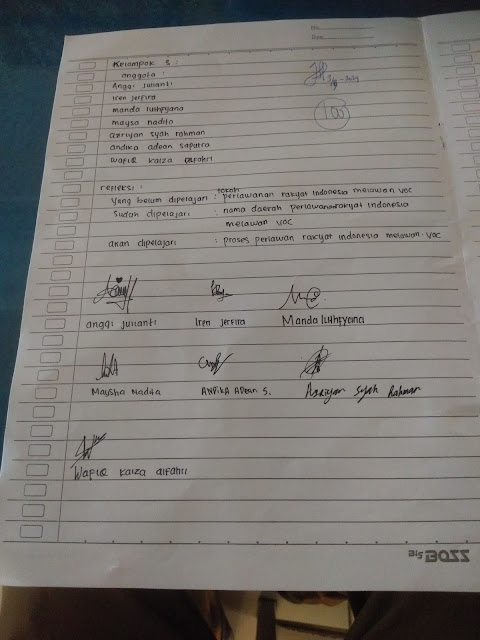 No.
Date.
Kelompok 3 :
anggota :
Anggi julianti
Iren jerfira
manda luthfyana
maysa nadita
azriyan syah rahman
andika adean saputra
wafiq kaiza alfahri
100
refleksi :
tokoh
Yang belum dipelajari : perlawanan rakyat indonesia melawan voc
Sudah dipelajari : nama daerah perlawanan rakyat indonesia
melawan voc
akan dipelajari : proses perlawan rakyat indonesia melawan voc
anggi julianti Iren jerfira Manda luthfyana
Maysha nadita ANDIKA ADean S. Azriyan Syah Rahman
Wafiq kaiza alfahri
BIG BOSS